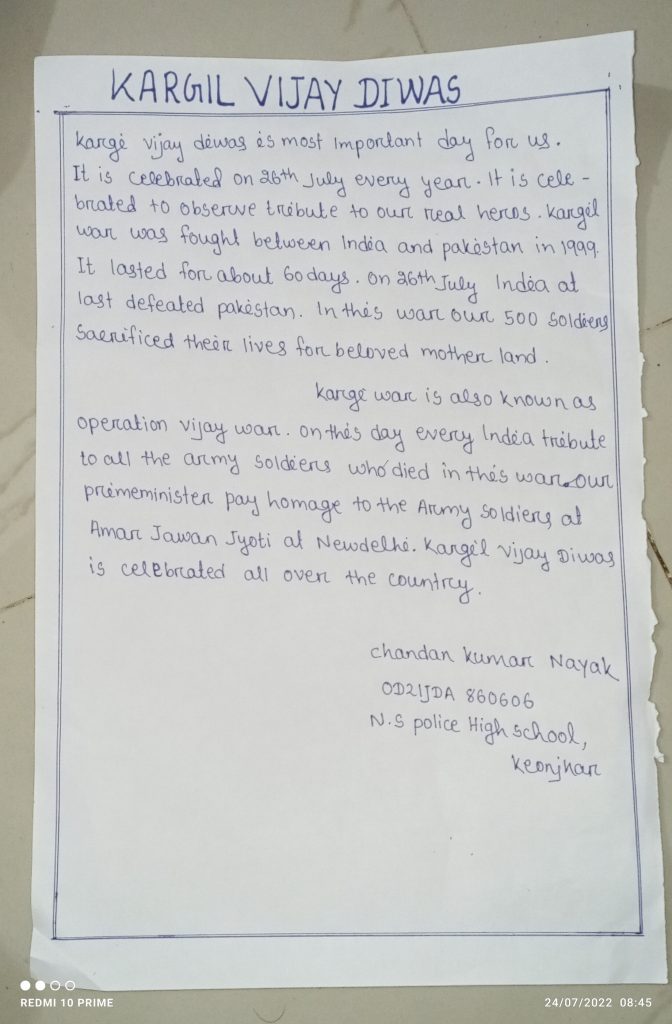 KARGIL VIJAY DIWAS
Kargi vijay diwas is most Important day for us.
It is celebrated on 26th July every year. It is cele-
brated to observe tribute to our real heros. Kargil
war was fought between India and pakistan in 1999.
It lasted for about 60 days. on 26th July India at
last defeated pakistan. In this war our 500 Soldiers
Sacrificed their lives for beloved mother land.
Kargi war is also known as
operation vijay war. on this day every India tribute
to all the army soldiers who died in this war. our
primeminister pay homage to the Army Soldiers at
Amar Jawan Jyoti at Newdelhi. Kargil Vijay Diwas
is celebrated all over the country.
chandan Kumar Nayak
OD21JDA 860606
N.S police High school,
Keonjhar
REDMI 10 PRIME
24/07/2022 08:45